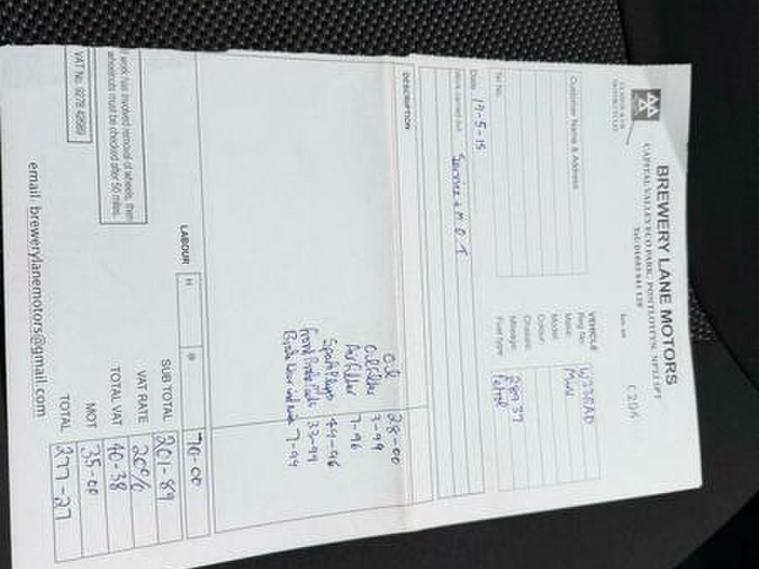 BREWERY LANE MOTORS
CAPITAL VALLEY ECO PARK, PONTLOTTYN, NP22 5PT
Tel: 01685 841 129
Customer Name & Address
Tel No.
Date 19-5-15
Work carried out Service & M.O.T
VEHICLE
Reg No.
Make: Mini
Model:
Colour:
Chassis:
Mileage: 28937
Fuel Type: Petrol
DESCRIPTION
Oil 28-00
Oil Filter 3-99
Air Filter 7-96
Spark Plugs 49-96
Front Brake Pads 33-99
Brake Wear 7-99
LABOUR H @ 70-00
SUB TOTAL 201-89
VAT RATE 20%
TOTAL VAT 40-38
MOT 35-00
TOTAL 277-27
work has involved removal of wheels, then
wheelnuts must be checked after 50 miles.
VAT No.
email: brewerylanemotors@gmail.com